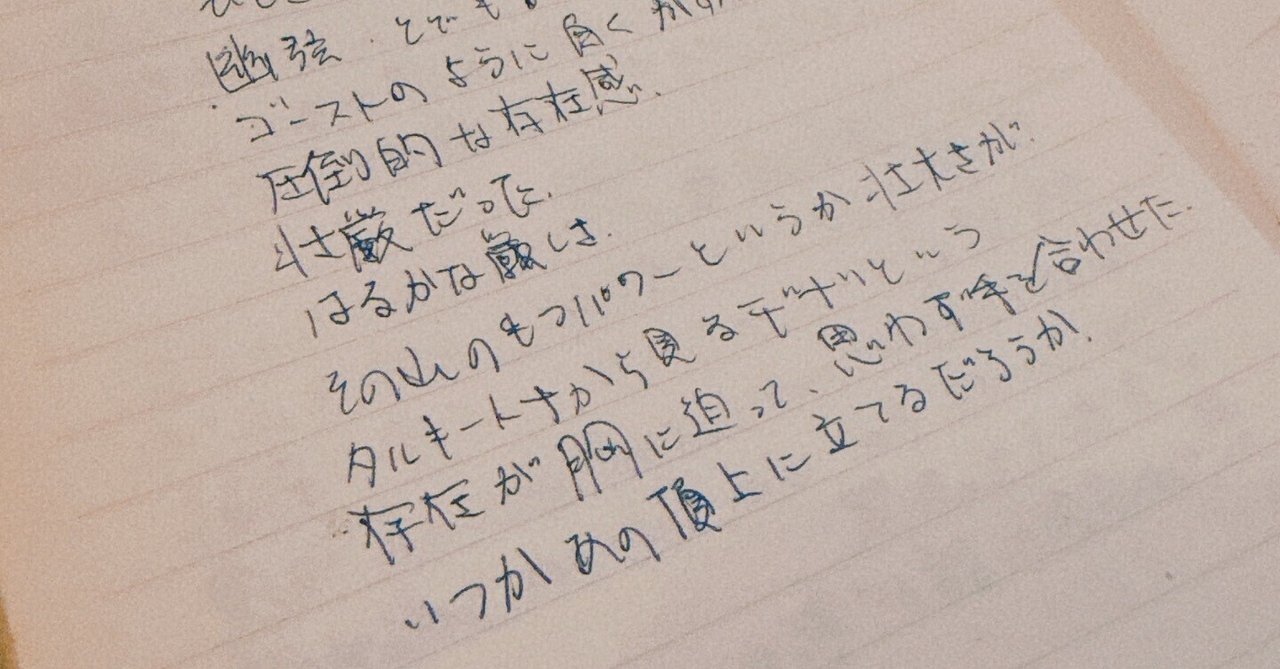 幽弦.とても
ゴーストのように白くかす
圧倒的な存在感.
壮厳だった.
はるかな厳しは.
その山のもつパワーというか壮大さが.
タルキートナから見るデナリという
存在が胸に迫って、思わず手を合わせた.
いつかあの頂上に立てるだろうか.